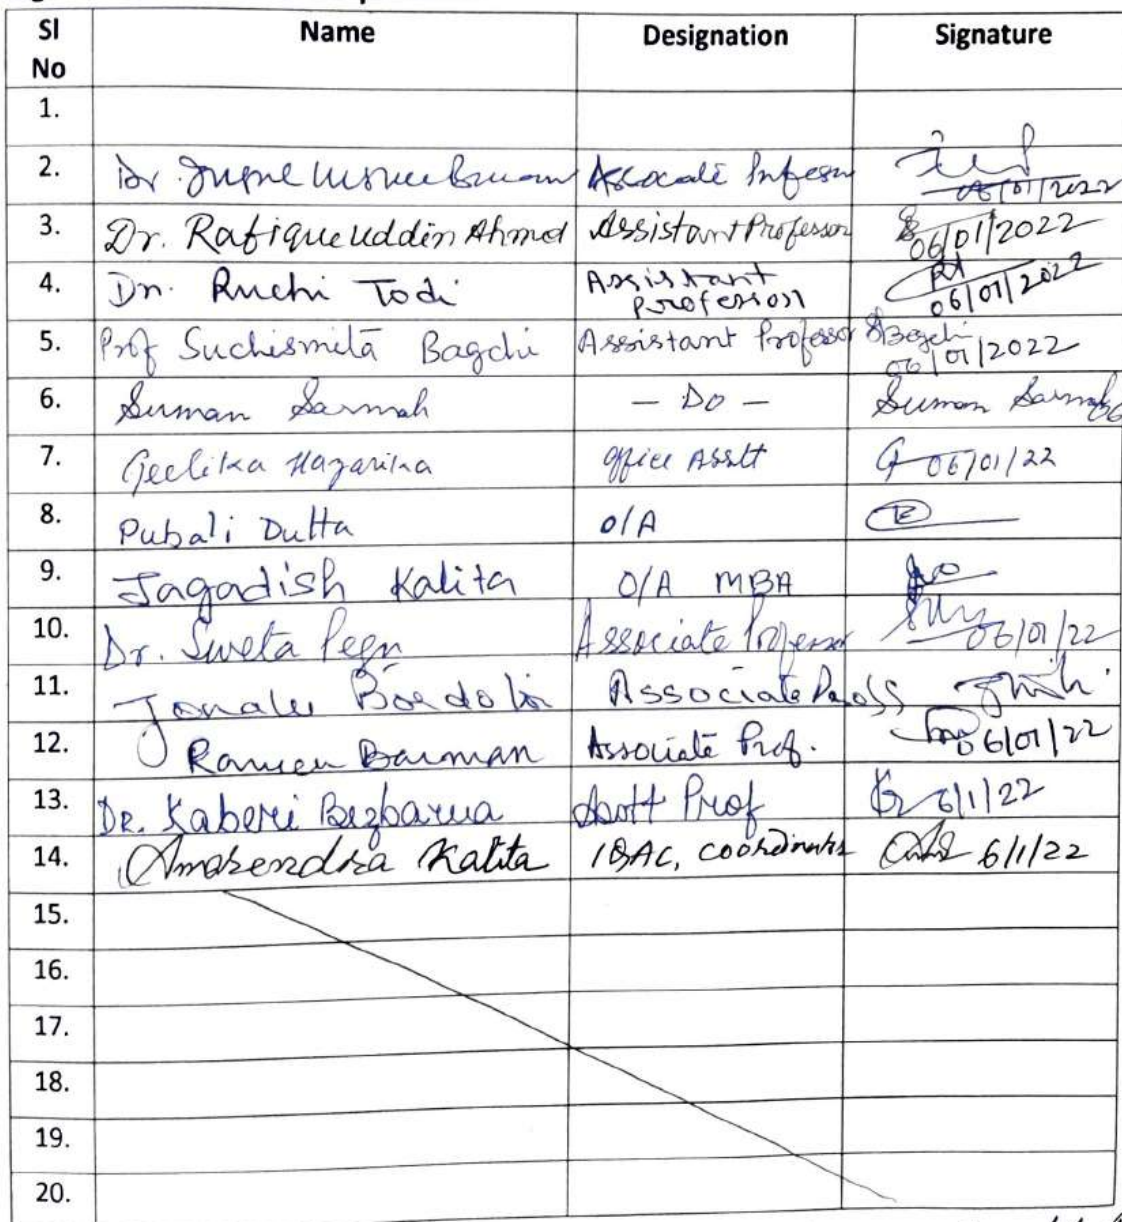 Sl No Name Designation Signature
1.
2. Dr. Associate 06/01/2022
3. Dr. Rafique Uddin Ahmed Assistant Professor 06/01/2022
4. Dr. Ruchi Todi Assistant Professor 06/01/2022
5. Prof Suchismita Bagchi Assistant Professor SBagchi 06/01/2022
6. Suman Sarmah — Do — Suman Sarmah 06
7. Geetika Hazarika office Asstt G 06/01/22
8. Pubali Dutta O/A
9. Jagadish Kalita O/A MBA
10. Dr. Sweta Associate Professor 06/01/22
11. Associate
12. Barman Associate Prof. 06/01/22
13. Dr. Kaberi Bezbarua Asstt Prof 6/1/22
14. Amarendra Kalita IQAC, Coordinator 6/1/22
15.
16.
17.
18.
19.
20.